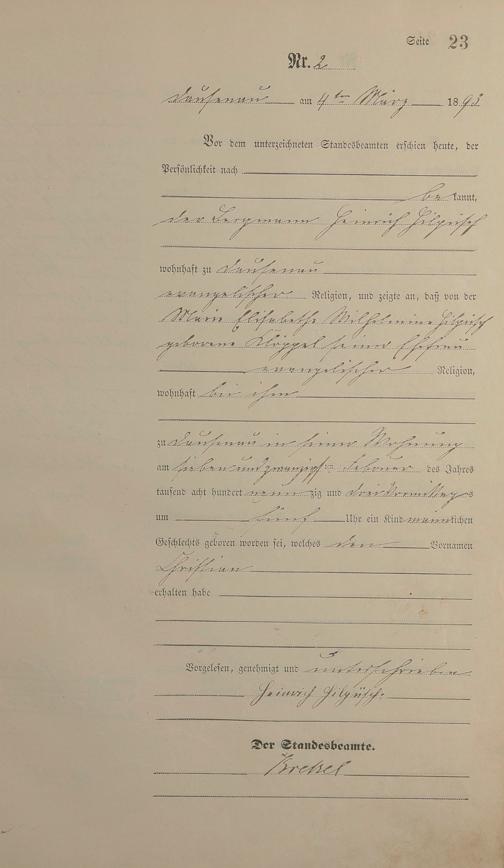 Seite 23
Nr. 2
Dausenau am 4ten März 1893
Vor dem unterzeichneten Standesbeamten erschien heute, der
Persönlichkeit nach
bekannt,
der Bergmann Heinrich Hilpüsch
wohnhaft zu Dausenau
evangelischer Religion, und zeigte an, daß von der
Marie Elisabethe Wilhelmine Hilpüsch
geborene Klöppel seiner Ehefrau
evangelischer Religion,
wohnhaft bei ihm
zu Dausenau in seiner Wohnung
am sieben und zwanzigsten Februar des Jahres
tausend acht hundert neunzig und drei Vormittags
um fünf Uhr ein Kind männlichen
Geschlechts geboren worden sei, welches den Vornamen
Christian
erhalten habe
Vorgelesen, genehmigt und unterschrieben
Heinrich Hilpüsch.
Der Standesbeamte.